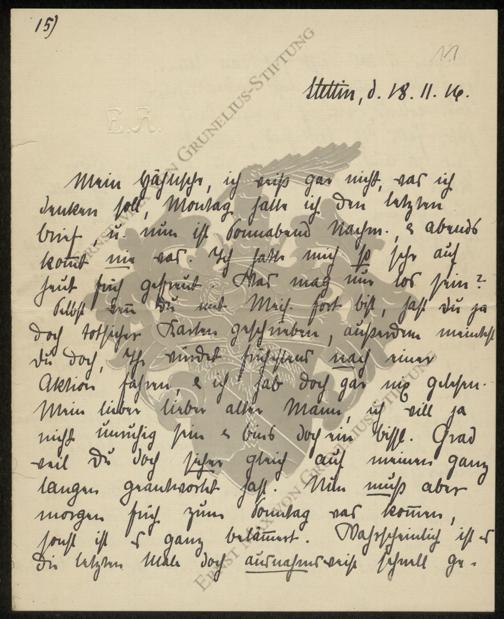 15)
Stettin, d. 18.11.16.
E.R.
Mein , ich weiß gar nicht, was ich
denken soll, Montag hatte ich den letzten
Brief, u. nun ist Sonnabend Nachm. & abends
kommt nie was. Ich hatte mich so sehr auf
heut früh gefreut. Was mag nur los sein?
Selbst wenn Du mit fort bist, hast Du ja
doch totsicher Karten geschrieben, außerdem meintest
Du doch, Ihr würdet frühstens nach einer
Aktion fahren, & ich hab doch gar nix gelesen.
Mein lieber lieber alter Mann, ich will ja
nicht unruhig sein & bins doch ein bissl. Grad
weil Du doch sicher gleich auf meinen ganz
langen geantwortet hast. Nun muß aber
morgen früh zum Sonntag was kommen,
sonst ist es ganz belämmert. Wahrscheinlich ist es
die letzten Male doch ausnahmsweise schnell ge-
ERNST MAX VON GRUNELIUS-STIFTUNG
ERNST MAX VON GRUNELIUS-STIFTUNG